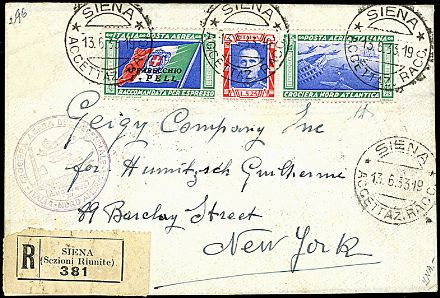 296
SIENA
13.6.33.19
ACCETTAZ. RACC.
ITALIA POSTA AEREA
APPARECCHIO
I-PELL
RACCOMANDATA PER ESPRESSO
POSTA AEREA ITALIA
CROCIERA NORD ATLANTICA
SIENA
13.6.33 19
ACCETTAZ. RACC.
Geigy Company Inc
for Humitzsch Guilherme
89 Barclay Street
New York
SIENA
13.6.33 19
ACCETTAZ. RACC.
R
SIENA
(Sezioni Riunite)
381